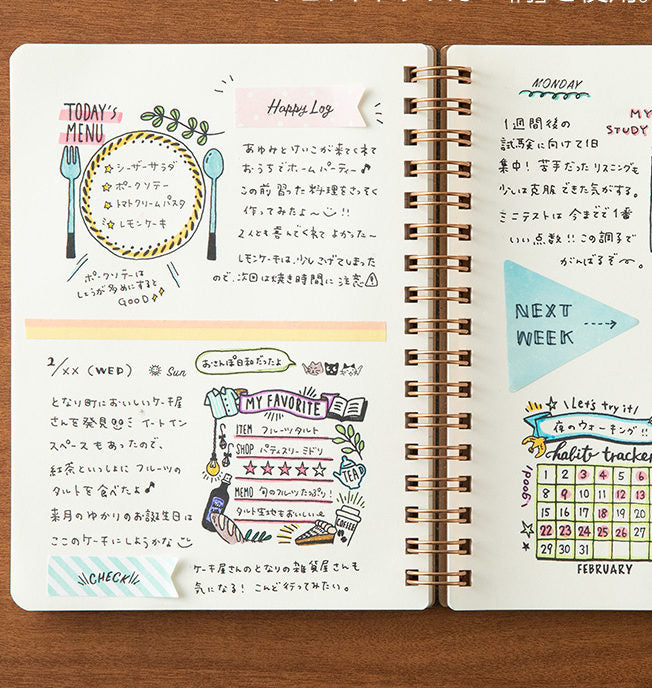 TODAY's
MENU
シーザーサラダ
ポークソテー
トマトクリームパスタ
レモンケーキ
ポークソテーは
しょうが多めにすると
GOOD
Happy Log
あゆみとけいこが来てくれて
おうちでホームパーティー♪
この前習った料理をさっそく
作ってみたよ〜!!
2人とも喜んでくれてよかった〜
レモンケーキは、少しこげてしまった
ので、次回は焼き時間に注意
2/XX (WED) Sun
おさんぽ日和だったよ
となり町においしいケーキ屋
さんを発見!!ミ イートイン
スペースもあったので、
紅茶といっしょにフルーツの
タルトを食べたよ♪
来月のゆかりのお誕生日は
ここのケーキにしようかな
MY FAVORITE
ITEM フルーツタルト
SHOP パティスリーミドリ
★★★★☆
MEMO 旬のフルーツたっぷり!
タルト生地もおいしい
TEA
COFFEE
CHECK!
ケーキ屋さんのとなりの雑貨屋さんも
気になる! こんど行ってみたい。
MONDAY
MY
STUDY
1週間後の
試験に向けて1日
集中! 苦手だったリスニングも
少しは克服できた気がする。
ミニテストは今までで1番
いい点数!! この調子で
がんばるぞ〜。
NEXT
WEEK
Let's try it!
夜のウォーキング!!
habits tracker
good!
1 2 3 4 5 6
8 9 10 11 12 13
15 16 17 18 19 20
22 23 24 25 26
29 30 31
FEBRUARY